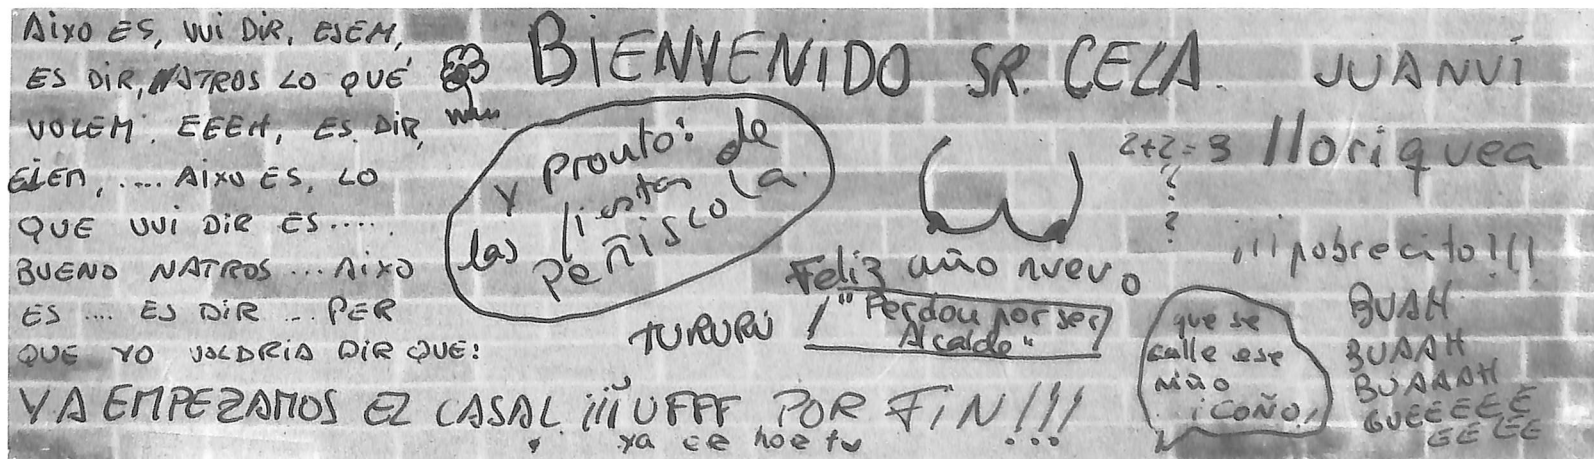 AIXO ES, VUI DIR, ESEM,
ES DIR, NATROS LO QUÉ
VOLEM. EEEH, ES DIR,
.... AIXO ES, LO
QUE VUI DIR ES.....
BUENO NATROS ... AIXO
ES .... ES DIR ... PER
QUE YO VOLDRIA DIR QUE:
YA EMPEZAMOS EL CASAL ¡¡¡UFFF POR FIN!!!
BIENVENIDO SR. CELA.
Y PRONTO: de
las fiestas
PEÑISCOLA
TURURÚ
Feliz año nuevo
"Perdon por ser
Alcalde"
2+2=3
?
?
?
JUANVI
lloriquea
¡¡¡pobrecito!!!
BUAH
BUAAH
BUAAAH
GUEEEEE
EEEE
que se
calle ese
niño
¡COÑO!
ya